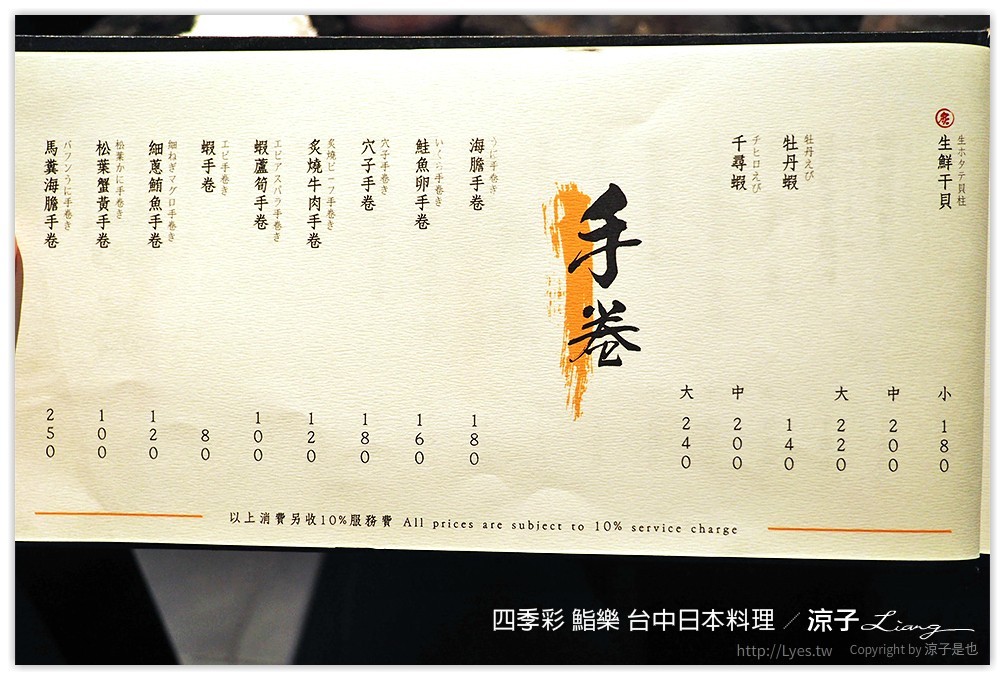 炙
生ホタテ貝柱
生鮮干貝
小 180
中 200
大 220
牡丹えび
牡丹蝦
140
チヒロえび
千尋蝦
中 200
大 240
手卷
うに手巻き
海膽手卷
180
いくら手巻き
鮭魚卵手卷
160
穴子手巻き
穴子手卷
180
炙燒ビーフ手巻き
炙燒牛肉手卷
120
エビアスパラ手巻き
蝦蘆筍手卷
100
エビ手巻き
蝦手卷
80
細ねぎマグロ手巻き
細蔥鮪魚手卷
120
松葉かに手巻き
松葉蟹黃手卷
100
バフンうに手巻き
馬糞海膽手卷
250
以上消費另收10%服務費 All prices are subject to 10% service charge
四季彩 鮨樂 台中日本料理 ／ 涼子 Liang
http://Lyes.tw Copyright by 涼子是也